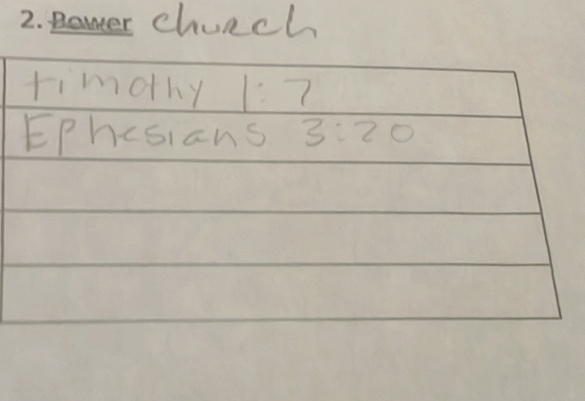 2. Power church
timothy 1:7
Ephesians 3:20